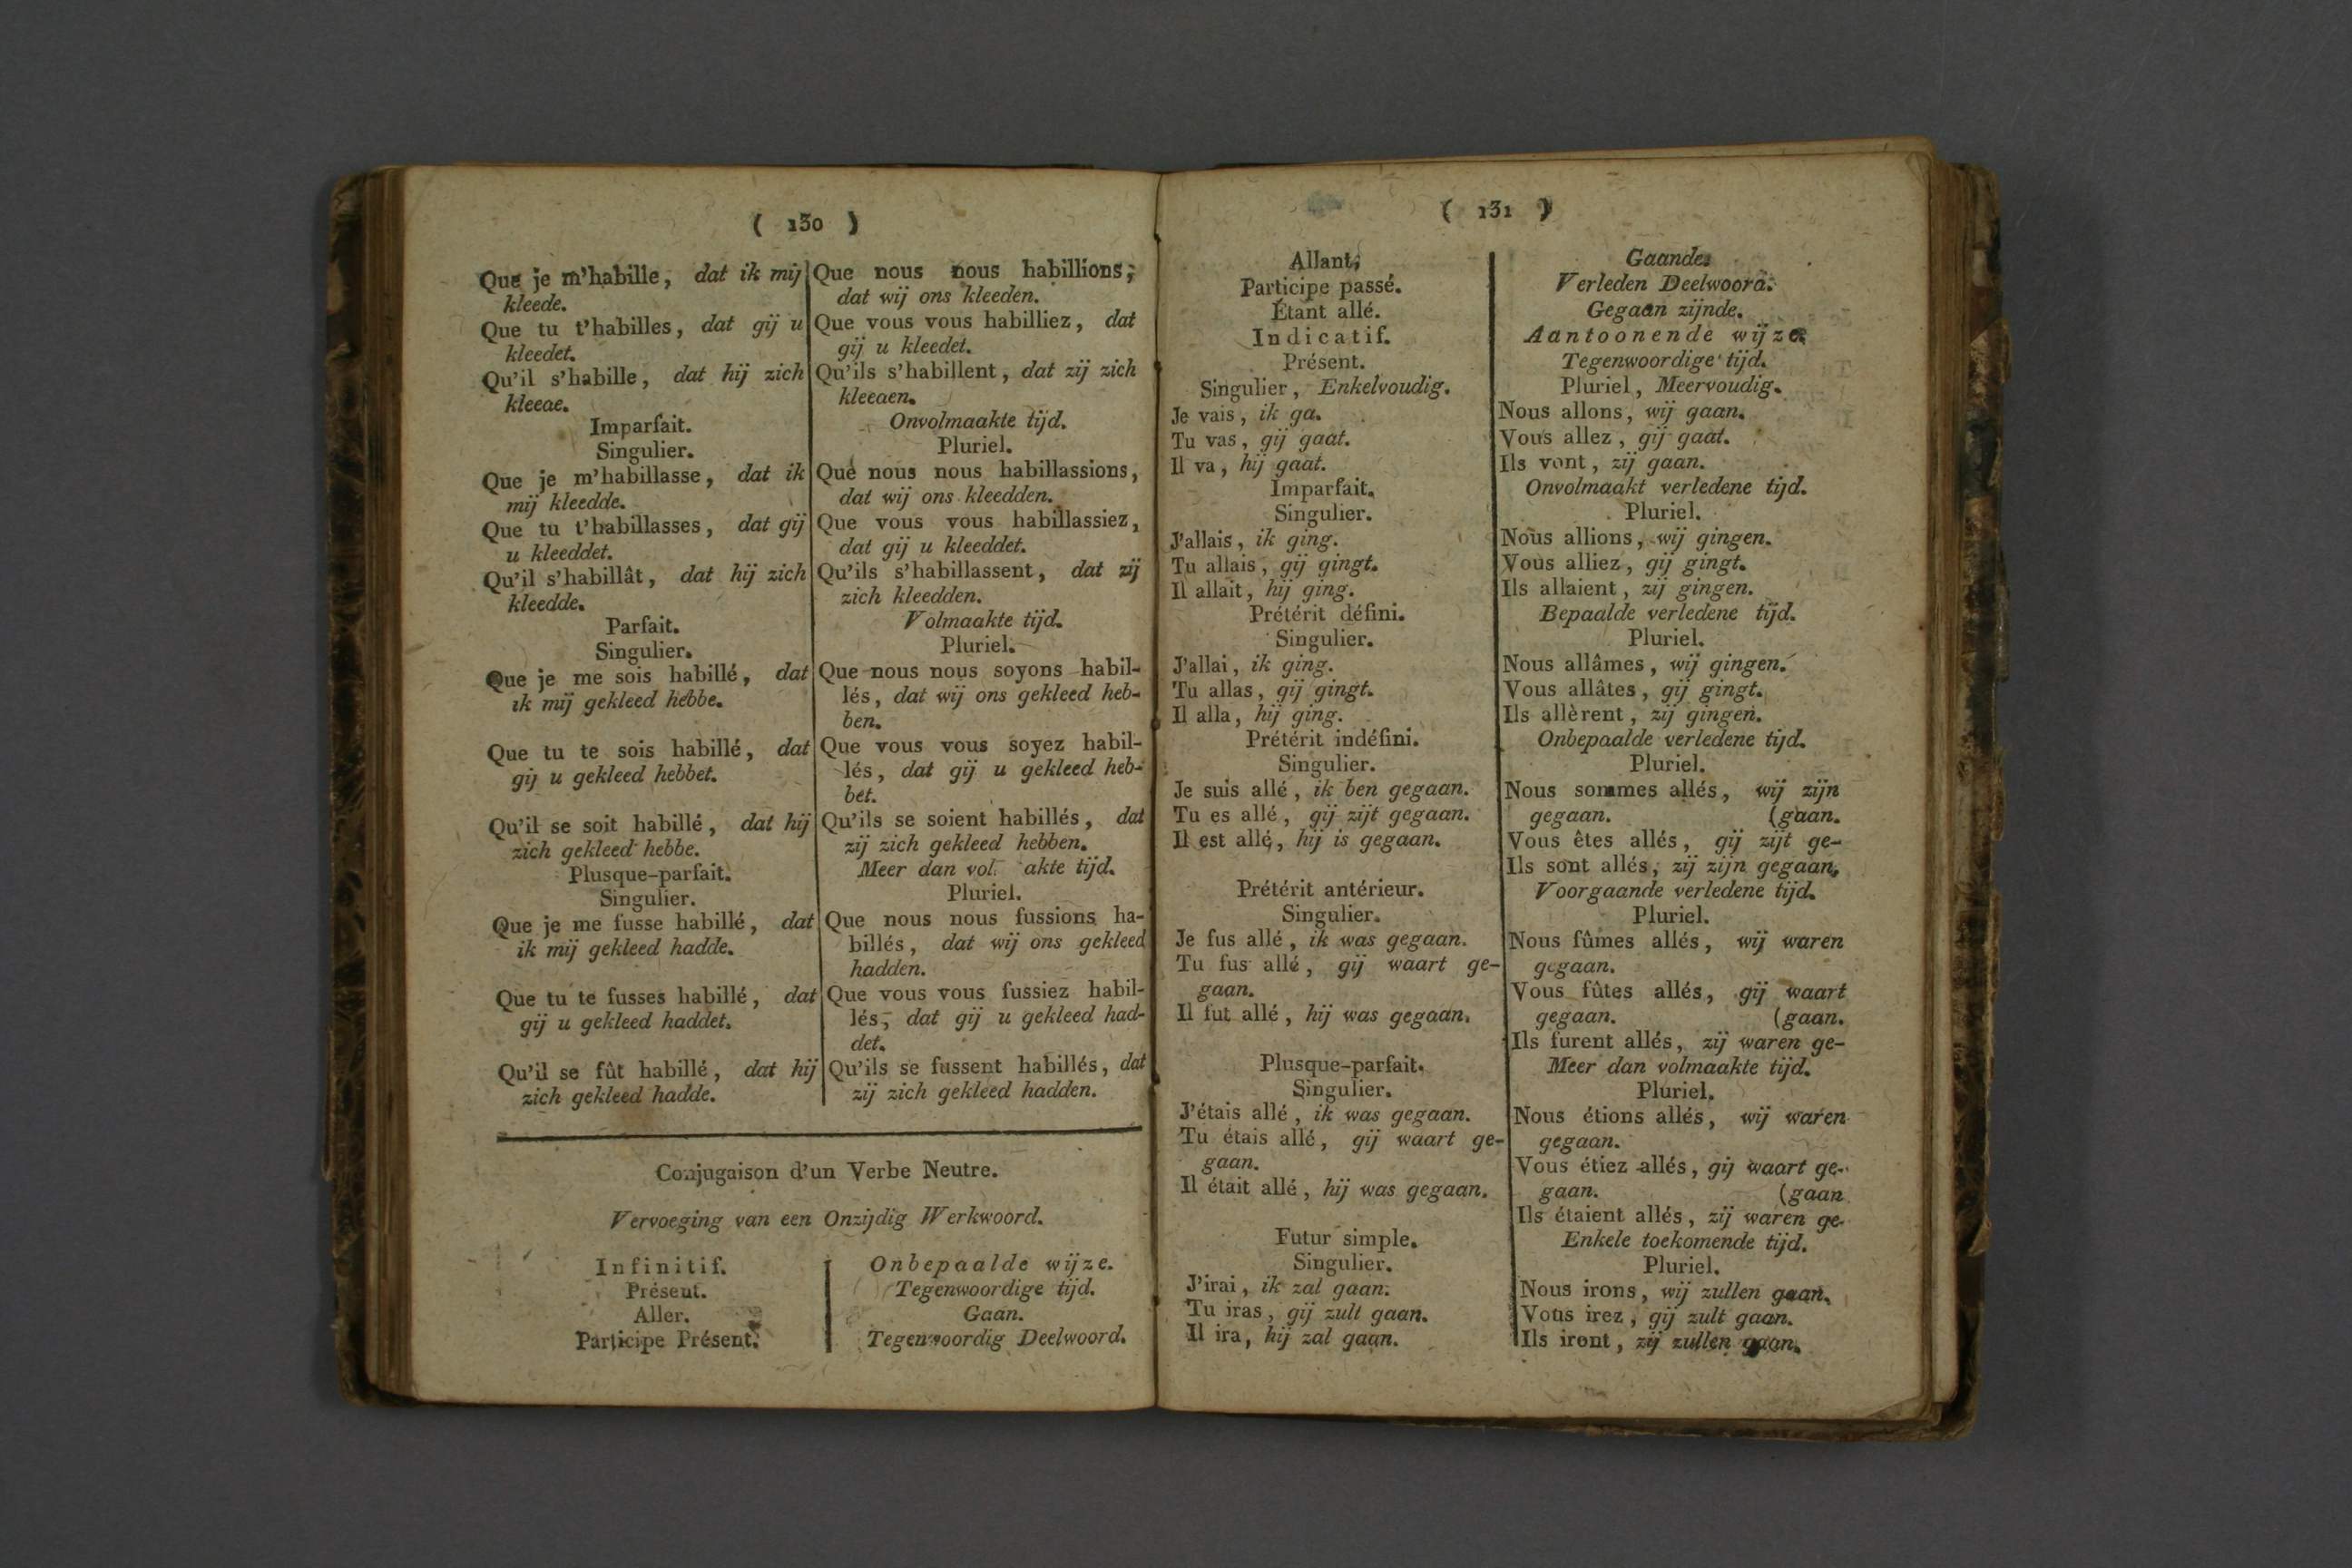 ( 130 )
Que je m'habille, dat ik mij
kleede.
Que tu t'habilles, dat gij u
kleedet.
Qu'il s'habille, dat hij zich
kleede.
Imparfait.
Singulier.
Que je m'habillasse, dat ik
mij kleedde.
Que tu t'habillasses, dat gij
u kleeddet.
Qu'il s'habillât, dat hij zich
kleedde.
Parfait.
Singulier.
Que je me sois habillé, dat
ik mij gekleed hebbe.
Que tu te sois habillé, dat
gij u gekleed hebbet.
Qu'il se soit habillé, dat hij
zich gekleed hebbe.
Plusque-parfait.
Singulier.
Que je me fusse habillé, dat
ik mij gekleed hadde.
Que tu te fusses habillé, dat
gij u gekleed haddet.
Qu'il se fût habillé, dat hij
zich gekleed hadde.
Que nous nous habillions,
dat wij ons kleeden.
Que vous vous habilliez, dat
gij u kleedet.
Qu'ils s'habillent, dat zij zich
kleeden.
Onvolmaakte tijd.
Pluriel.
Que nous nous habillassions,
dat wij ons kleedden.
Que vous vous habillassiez,
dat gij u kleeddet.
Qu'ils s'habillassent, dat zij
zich kleedden.
Volmaakte tijd.
Pluriel.
Que nous nous soyons habil-
lés, dat wij ons gekleed heb-
ben.
Que vous vous soyez habil-
lés, dat gij u gekleed heb-
bet.
Qu'ils se soient habillés, dat
zij zich gekleed hebben.
Meer dan vol akte tijd.
Pluriel.
Que nous nous fussions ha-
billés, dat wij ons gekleed
hadden.
Que vous vous fussiez habil-
lés, dat gij u gekleed had-
det.
Qu'ils se fussent habillés, dat
zij zich gekleed hadden.
Conjugaison d'un Verbe Neutre.
Vervoeging van een Onzijdig Werkwoord.
Infinitif.
Présent.
Aller.
Participe Présent.
Onbepaalde wijze.
Tegenwoordige tijd.
Gaan.
Tegenwoordig Deelwoord.
( 131 )
Allant,
Participe passé.
Étant allé.
Indicatif.
Présent.
Singulier, Enkelvoudig.
Je vais, ik ga.
Tu vas, gij gaat.
Il va, hij gaat.
Imparfait.
Singulier.
J'allais, ik ging.
Tu allais, gij gingt.
Il allait, hij ging.
Prétérit défini.
Singulier.
J'allai, ik ging.
Tu allas, gij gingt.
Il alla, hij ging.
Prétérit indéfini.
Singulier.
Je suis allé, ik ben gegaan.
Tu es allé, gij zijt gegaan.
Il est allé, hij is gegaan.
Prétérit antérieur.
Singulier.
Je fus allé, ik was gegaan.
Tu fus allé, gij waart ge-
gaan.
Il fut allé, hij was gegaan.
Plusque-parfait.
Singulier.
J'étais allé, ik was gegaan.
Tu étais allé, gij waart ge-
gaan.
Il était allé, hij was gegaan.
Futur simple.
Singulier.
J'irai, ik zal gaan.
Tu iras, gij zult gaan.
Il ira, hij zal gaan.
Gaande.
Verleden Deelwoord.
Gegaan zijnde.
Aantoonende wijze
Tegenwoordige tijd.
Pluriel, Meervoudig.
Nous allons, wij gaan.
Vous allez, gij gaat.
Ils vont, zij gaan.
Onvolmaakt verledene tijd.
Pluriel.
Nous allions, wij gingen.
Vous alliez, gij gingt.
Ils allaient, zij gingen.
Bepaalde verledene tijd.
Pluriel.
Nous allâmes, wij gingen.
Vous allâtes, gij gingt.
Ils allèrent, zij gingen.
Onbepaalde verledene tijd.
Pluriel.
Nous sommes allés, wij zijn
gegaan. (gaan.
Vous êtes allés, gij zijt ge-
Ils sont allés, zij zijn gegaan.
Voorgaande verledene tijd.
Pluriel.
Nous fûmes allés, wij waren
gegaan.
Vous fûtes allés, gij waart
gegaan. (gaan.
Ils furent allés, zij waren ge-
Meer dan volmaakte tijd.
Pluriel.
Nous étions allés, wij waren
gegaan.
Vous étiez allés, gij waart ge-
gaan. (gaan
Ils étaient allés, zij waren ge-
Enkele toekomende tijd.
Pluriel.
Nous irons, wij zullen gaan.
Vous irez, gij zult gaan.
Ils iront, zij zullen gaan.